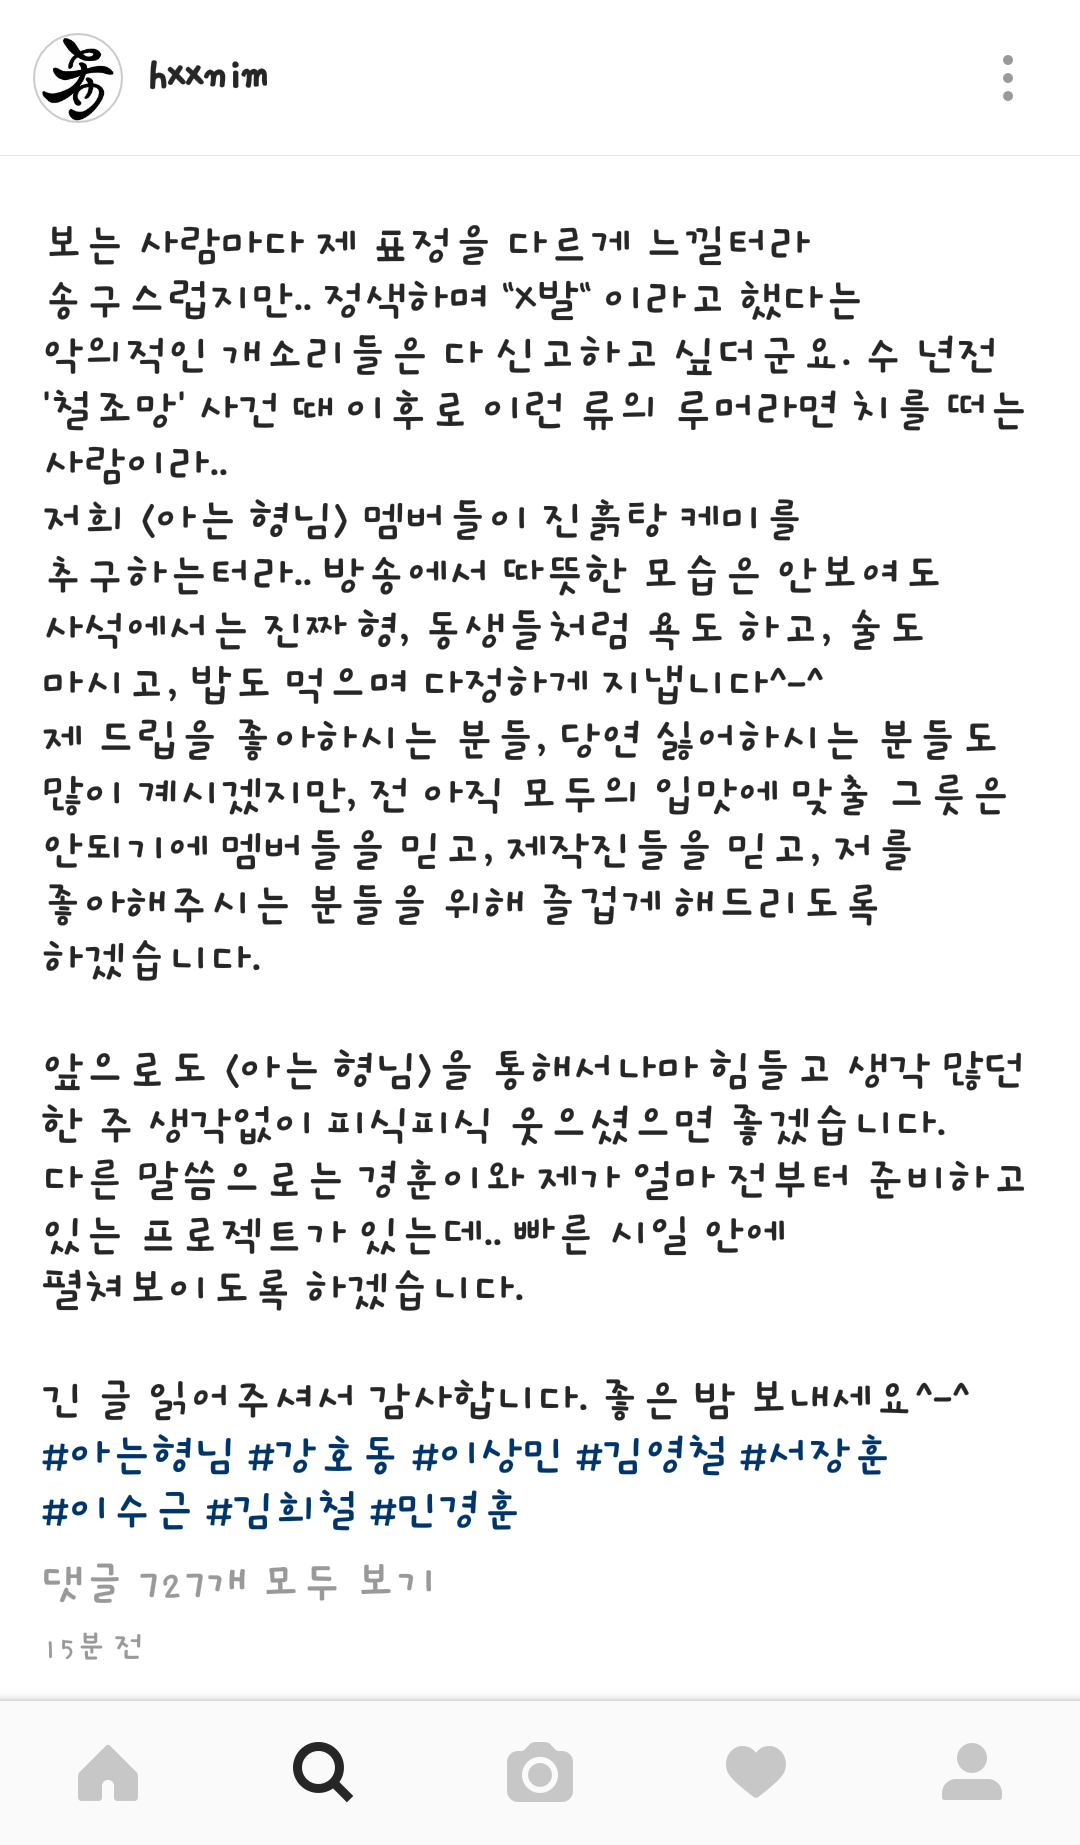 hxxnim
보는 사람마다 제 표정을 다르게 느낄터라
송구스럽지만.. 정색하며 "X발" 이라고 했다는
악의적인 개소리들은 다 신고하고 싶더군요. 수 년전
'철조망' 사건 때 이후로 이런 류의 루머라면 치를 떠는
사람이라..
저희 <아는 형님> 멤버들이 진흙탕 케미를
추구하는터라.. 방송에서 따뜻한 모습은 안보여도
사석에서는 진짜 형, 동생들처럼 욕도 하고, 술도
마시고, 밥도 먹으며 다정하게 지냅니다^-^
제 드립을 좋아하시는 분들, 당연 싫어하시는 분들도
많이 계시겠지만, 전 아직 모두의 입맛에 맞출 그릇은
안되기에 멤버들을 믿고, 제작진들을 믿고, 저를
좋아해주시는 분들을 위해 즐겁게 해드리도록
하겠습니다.
앞으로도 <아는 형님>을 통해서나마 힘들고 생각 많던
한 주 생각없이 피식피식 웃으셨으면 좋겠습니다.
다른 말씀으로는 경훈이와 제가 얼마 전부터 준비하고
있는 프로젝트가 있는데.. 빠른 시일 안에
펼쳐보이도록 하겠습니다.
긴 글 읽어주셔서 감사합니다. 좋은 밤 보내세요^-^
#아는형님 #강호동 #이상민 #김영철 #서장훈
#이수근 #김희철 #민경훈
댓글 727개 모두 보기
15분 전